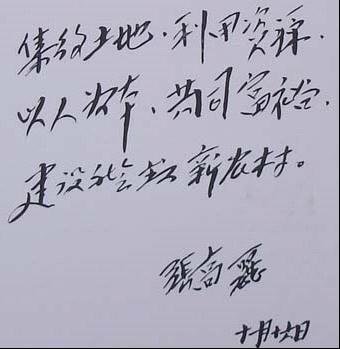 集约土地，利用资源，
以人为本，共同富裕，
建设社会主义新农村。
张高丽
十月十六日